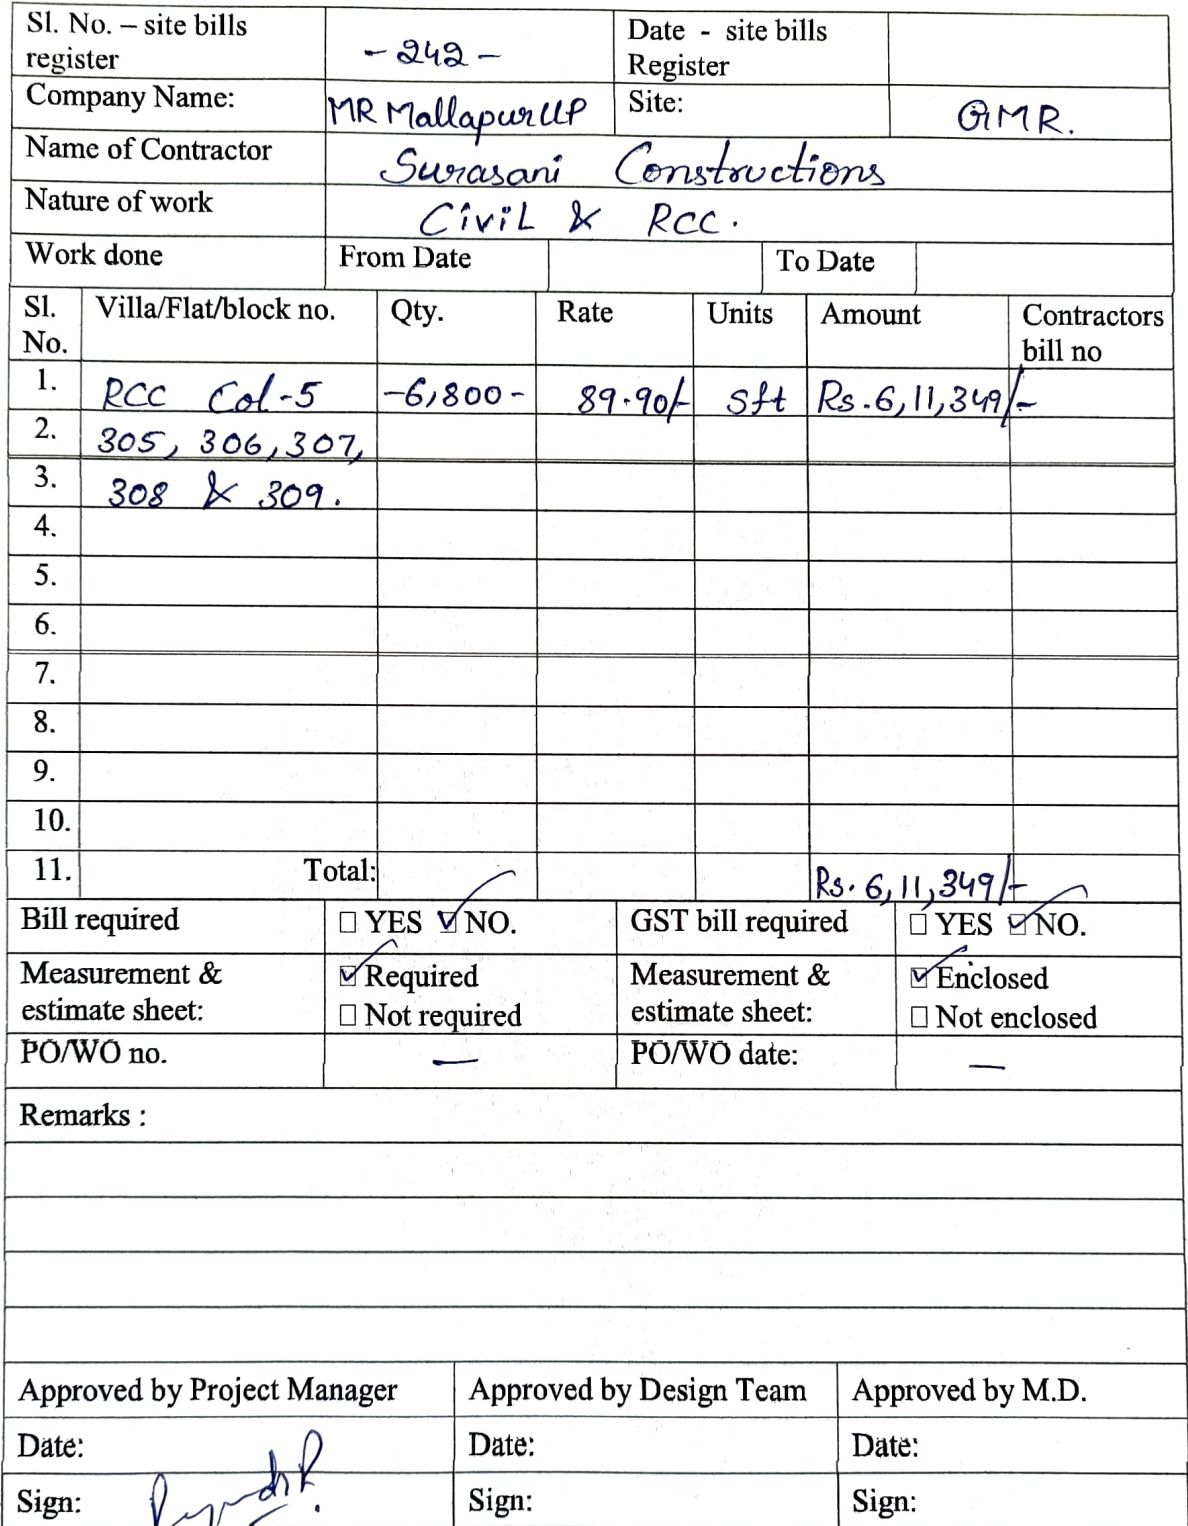 Sl. No. – site bills register - 242 - Date - site bills Register
Company Name: MR Mallapur LLP Site: GMR.
Name of Contractor Surasani Constructions
Nature of work Civil & RCC.
Work done From Date To Date
Sl. No. Villa/Flat/block no. Qty. Rate Units Amount Contractors bill no
1. RCC Col-5 -6,800- 89.90/- sft Rs.6,11,349/-
2. 305, 306, 307,
3. 308 & 309.
4.
5.
6.
7.
8.
9.
10.
11. Total: Rs. 6,11,349/-
Bill required ☐ YES ☑ NO. GST bill required ☐ YES ☑ NO.
Measurement & estimate sheet: ☑ Required ☐ Not required Measurement & estimate sheet: ☑ Enclosed ☐ Not enclosed
PO/WO no. — PO/WO date: —
Remarks :
Approved by Project Manager Approved by Design Team Approved by M.D.
Date: Date: Date:
Sign: Sign: Sign: